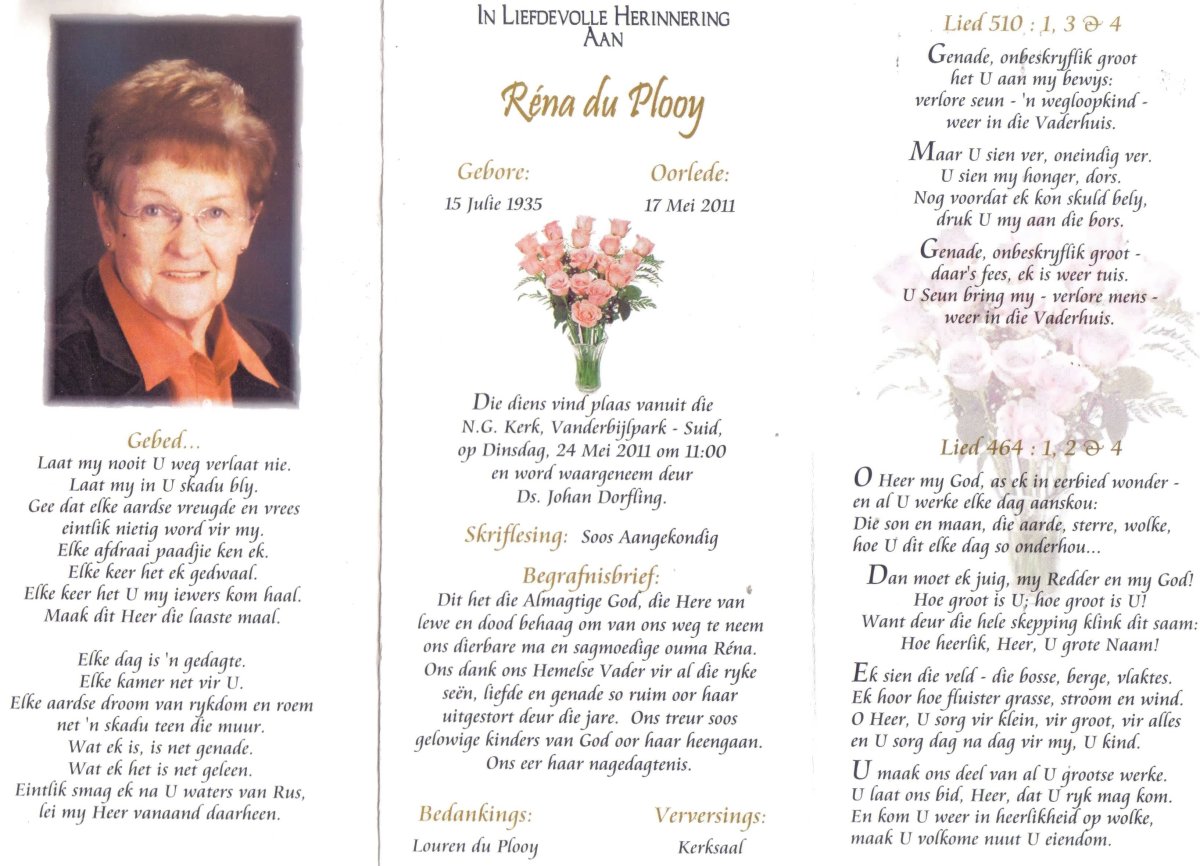 Gebed...
Laat my nooit U weg verlaat nie.
Laat my in U skadu bly.
Gee dat elke aardse vreugde en vrees
eintlik nietig word vir my.
Elke afdraai paadjie ken ek.
Elke keer het ek gedwaal.
Elke keer het U my iewers kom haal.
Maak dit Heer die laaste maal.
Elke dag is 'n gedagte.
Elke kamer net vir U.
Elke aardse droom van rykdom en roem
net 'n skadu teen die muur.
Wat ek is, is net genade.
Wat ek het is net geleen.
Eintlik smag ek na U waters van Rus,
lei my Heer vanaand daarheen.
In Liefdevolle Herinnering
Aan
Réna du Plooy
Gebore: Oorlede:
15 Julie 1935 17 Mei 2011
Die diens vind plaas vanuit die
N.G. Kerk, Vanderbijlpark - Suid,
op Dinsdag, 24 Mei 2011 om 11:00
en word waargeneem deur
Ds. Johan Dorfling.
Skriflesing: Soos Aangekondig
Begrafnisbrief:
Dit het die Almagtige God, die Here van
lewe en dood behaag om van ons weg te neem
ons dierbare ma en sagmoedige ouma Réna.
Ons dank ons Hemelse Vader vir al die ryke
seën, liefde en genade so ruim oor haar
uitgestort deur die jare. Ons treur soos
gelowige kinders van God oor haar heengaan.
Ons eer haar nagedagtenis.
Bedankings: Verversings:
Louren du Plooy Kerksaal
Lied 510 : 1, 3 & 4
Genade, onbeskryflik groot
het U aan my bewys:
verlore seun - 'n wegloopkind -
weer in die Vaderhuis.
Maar U sien ver, oneindig ver.
U sien my honger, dors.
Nog voordat ek kon skuld bely,
druk U my aan die bors.
Genade, onbeskryflik groot -
daar's fees, ek is weer tuis.
U Seun bring my - verlore mens -
weer in die Vaderhuis.
Lied 464 : 1, 2 & 4
O Heer my God, as ek in eerbied wonder -
en al U werke elke dag aanskou:
Die son en maan, die aarde, sterre, wolke,
hoe U dit elke dag so onderhou...
Dan moet ek juig, my Redder en my God!
Hoe groot is U; hoe groot is U!
Want deur die hele skepping klink dit saam:
Hoe heerlik, Heer, U grote Naam!
Ek sien die veld - die bosse, berge, vlaktes.
Ek hoor hoe fluister grasse, stroom en wind.
O Heer, U sorg vir klein, vir groot, vir alles
en U sorg dag na dag vir my, U kind.
U maak ons deel van al U grootse werke.
U laat ons bid, Heer, dat U ryk mag kom.
En kom U weer in heerlikheid op wolke,
maak U volkome nuut U eiendom.